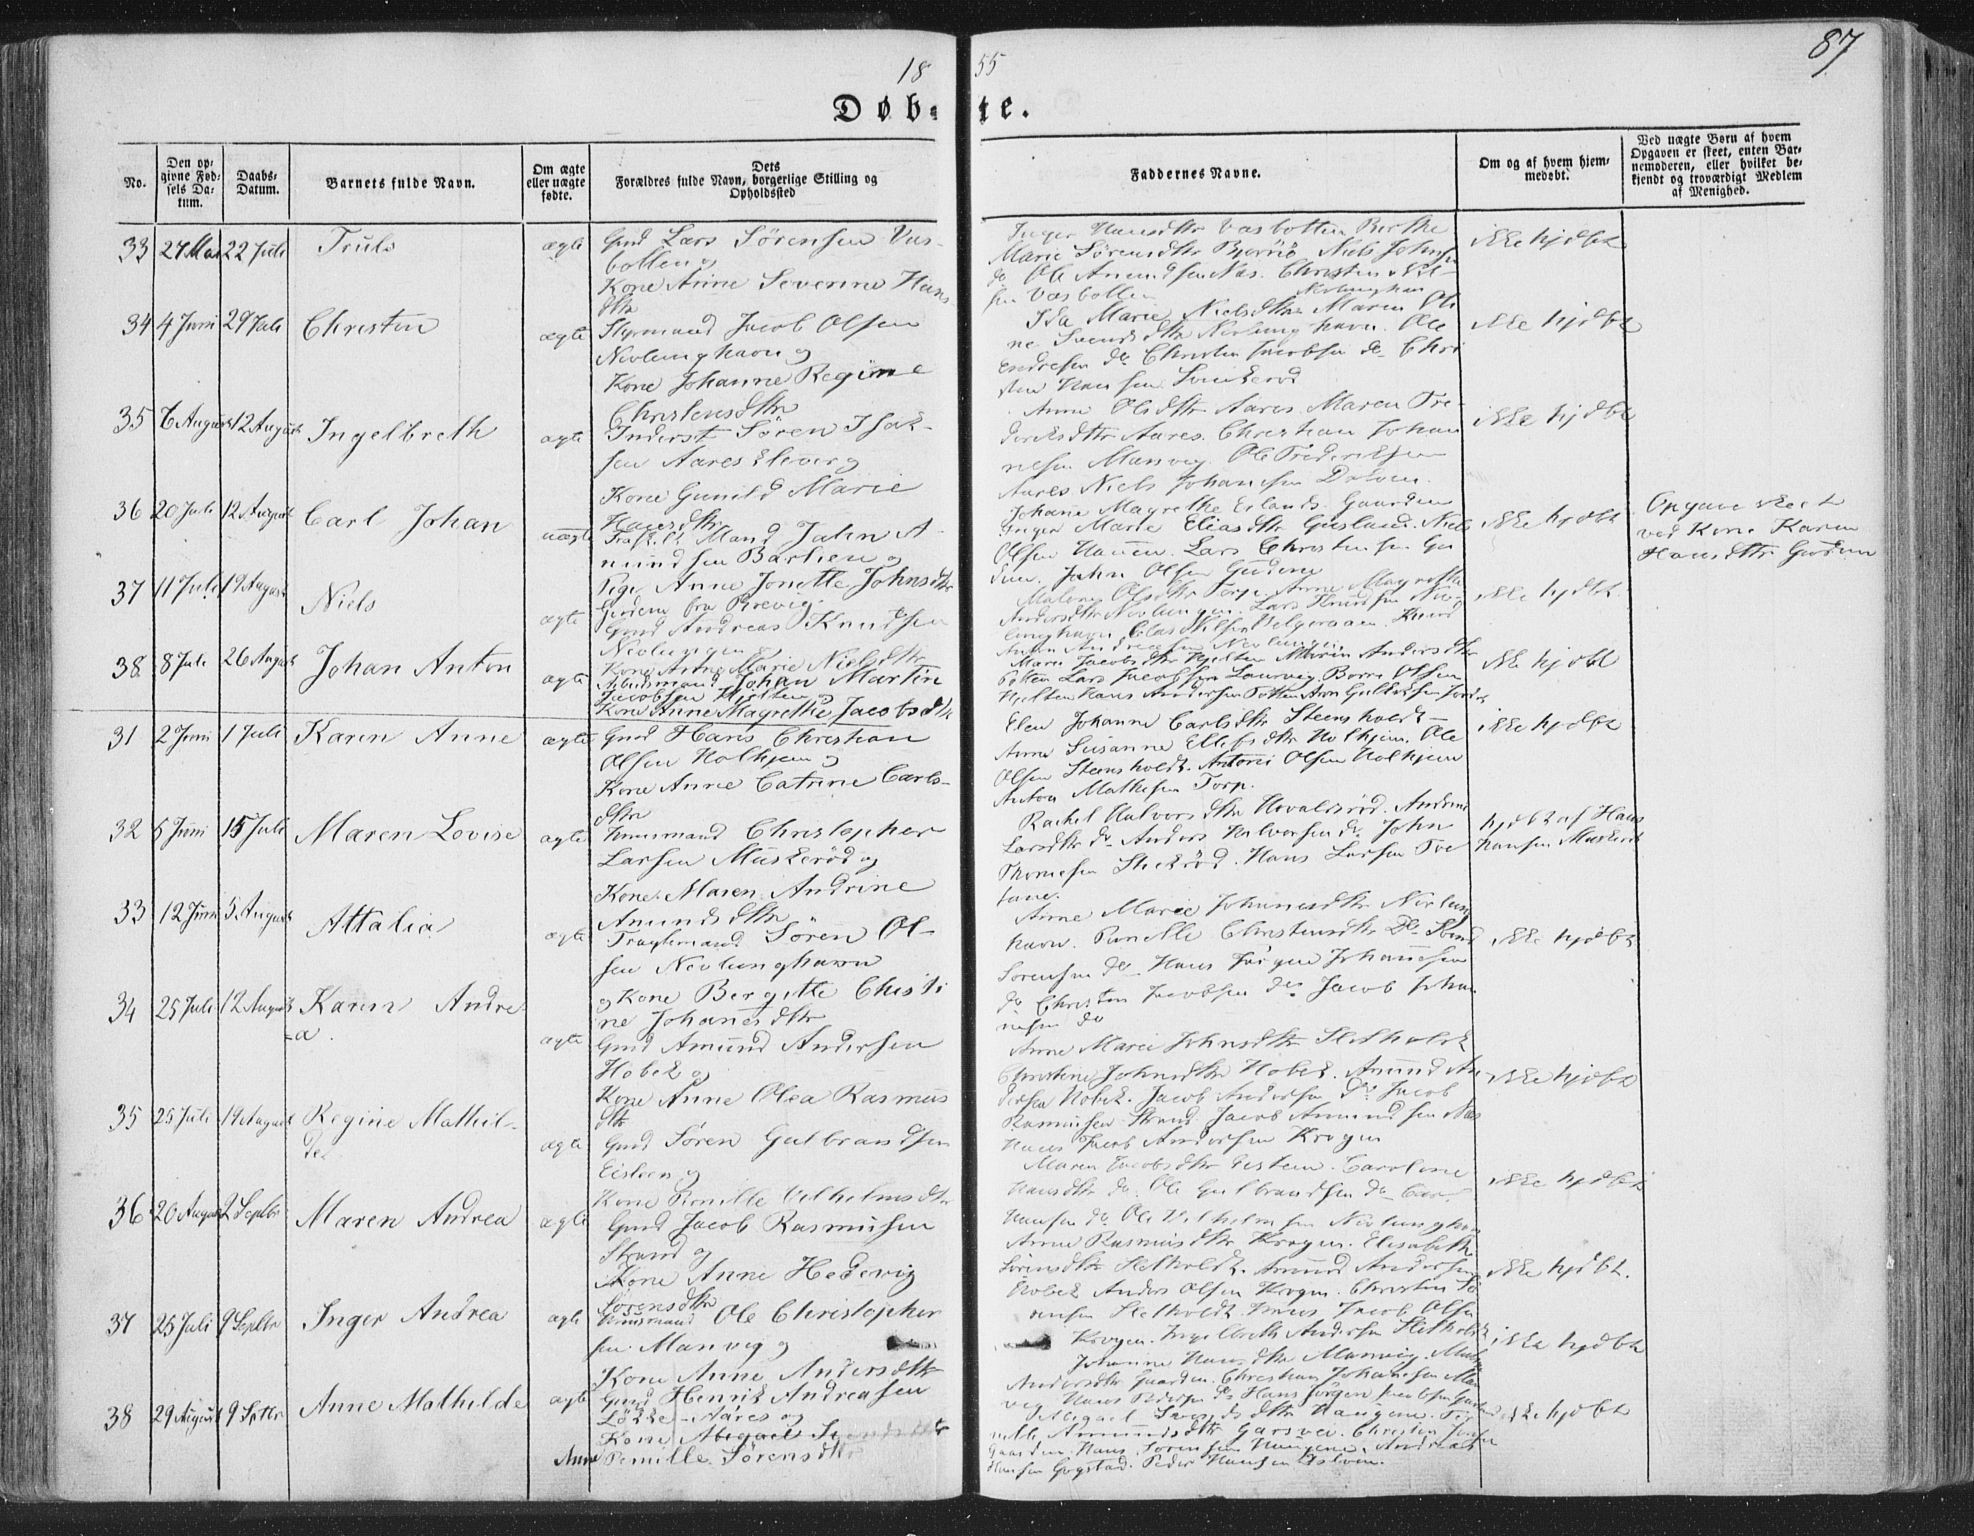 87
18 55
Døb- te.
No.
Den op-
givne Fød-
sels Da-
tum.
Daabs-
Datum.
Barnets fulde Navn.
Om ægte
eller uægte
fødte.
Dets
Forældres fulde Navn, borgerlige Stilling og
Opholdssted
Faddernes Navne.
Om og af hvem hjem-
medøbt.
Ved uægte Børn af hvem
Opgaven er skeet, enten Bar-
nemoderen, eller hvilket be-
kjendt og troværdigt Medlem
af Menighed.
33 27 Mai 22 Juli Truls ægte
Gmd Lars Sörensen Vas-
botten og
Kone Anne Severine Hans
dtr
Inger Hansdtr Vasbotten Birthe
Marie Sörensdtr Niels Johnsen
do Ole Amundsen Næs. Christen Niel-
sen Vasbotten
ikke hjdbt
34 4 Juni 29 Juli Christen ægte
Styrmand Jacob Olsen
Nevlunghavn og
Kone Johanne Regine
Christensdtr
Ida Marie Nielsdtr Nevlunghavn Maren Oli
ne Svendsdtr Nevlunghavn. Ole
do Christen Jacobsen do Chri
sten Hansen
ikke hjdbt
35 6 August 12 August Ingelbreth ægte
Inderst Sören Isak-
sen Aares Eleveg
Kone Gunild Marie
Hansdtr
Anne Olsdtr Aares. Maren Fre-
deriksdtr Aares. Christian Johan
nesen Manvig. Ole Frederiksen
Aares Niels Johansen Dolven.
ikke hjdbt
36 20 Juli 12 August Carl Johan uægte
Mand John A-
mundsen Barlien og
Pige Anne Jonette Johnsdtr
Gurdene fra Brevig
Johane Magrethe Gaarden
Inger Marie Eliasdtr Niels
Olsen Haunen. Lars Christensen Gu
John Olsen Gudene
ikke hjdbt
Opgave skeet
ved Kone Karen
Hansdtr Guden
37 11 Juli 19 August Niels ægte
Gmd Andreas Knudsen
Nevlungen og
Kone Anne Marie Nielsdtr
Malene Olsdtr Torp. Anne Magrethe
Andersdtr Nevlungen. Lars Knudsen Nev
lunghavn. Nilsen Helgeroaen. Knud
Andreasen Nevlungen
ikke hjdbt
38 8 Juli 26 August Johan Anton ægte
Arbeidsmand Johan Martin
Jacobsen Hjelten og
Kone Anne Magrethe Jacobsdtr
Maren Jacobsdtr Hjelten Andersdtr
Potten Lars Jacobsen Laurvig. Olsen
Hjelten Hans Andersen Potten
ikke hjdbt
31 2 Juni 1 Juli Karen Anne ægte
Gmd Hans Christian
Olsen Holhjem og
Kone Anne Catrine Carls-
dtr
Elen Johanne Carlsdtr Steensholdt
Anne Susanne Ellefsdtr Holhjem. Ole
Olsen Steensholdt. Antoni Olsen Holhjem
Anton Mathisen Torp.
ikke hjdbt
32 5 Juni 15 Juli Maren Lovise ægte
Huusmand Christopher
Larsen Muskerød og
Kone Maren Andrine
Amundsdtr
Rachel Halvorsdtr Andrine
Larsdtr do Anders Halvorsen do John
Thomesen Hans Larsen Tve
tene.
hjdbt af Hans
Hansen Muskerød
33 12 Juni 5 August Attalia ægte
Sören Ol-
sen Nevlunghavn
og Kone Bergitte Christi
ne Johanesdtr
Anne Marie Johannesdtr Nevlung
havn. Pernille Christensdtr do
Sörensen do Hans Jörgen Johannesen
do Christen Jacobsen do Jacob Johan
nesen do
ikke hjdbt
34 25 Juli 12 August Karen Andre
-a. ægte
Gmd Amund Andersen
Hobek og
Kone Anne Olea Rasmus
dtr
Anne Marie Johnsdtr Sletholdt
Christine Johnsdtr Hobek. Amund An
dersen Hobek. Jacob Andersen do Jacob
Rasmussen Strand. Jacob Amundsen Næs
Hans Jacob Andersen Krogen
ikke hjdbt
35 25 Juli 19 August Regine Mathil-
de ægte
Gmd Sören Gulbrandsen
Eisteen og
Kone Pernille Vilhelmsdtr
Maren Jacobsdtr Eisteen. Caroline
Hansdtr do. Ole Gulbrandsen do Carl
Hansen do Ole Vilhelmsen Nevlunghavn
ikke hjdbt
36 20 August 2 Septbr Maren Andrea ægte
Gmd Jacob Rasmusen
Strand og
Kone Anne Hedevig
Sörensdtr
Anne Rasmusdtr Krogen. Elisabeth
Sörensdtr Sletholdt. Amund Andersen
Hobek Anders Olsen Krogen. Christen Sö
rensen Sletholdt. Hans Jacob Olsen
Krogen. Ingelbreth Andersen Sletholdt
ikke hjdbt.
37 25 Juli 9 Septbr Inger Andrea ægte
Huusmand Ole Christopher
sen Manvig og
Kone Anne Andersdtr
Johanne Hansdtr Manvig.
Andersdtr Gaarden. Christian Johanesen Man
vig Hans Pedersen do Hans Jörgen Jacobsen
ikke hjdbt
38 29 August 9 Septbr Anne Mathilde ægte
Gmd Henrik Andreasen
Løkke-Aares og
Kone Abigael Svendsdtr
Anne Pernille Sörensdtr
Abigael Svendsdtr Haugene. Per
nille Amundsdtr Christen
Gaarden. Hans Sörensen Haugene. Andreas
Hansen Gogstad. Peder Hansen
ikke hjdbt